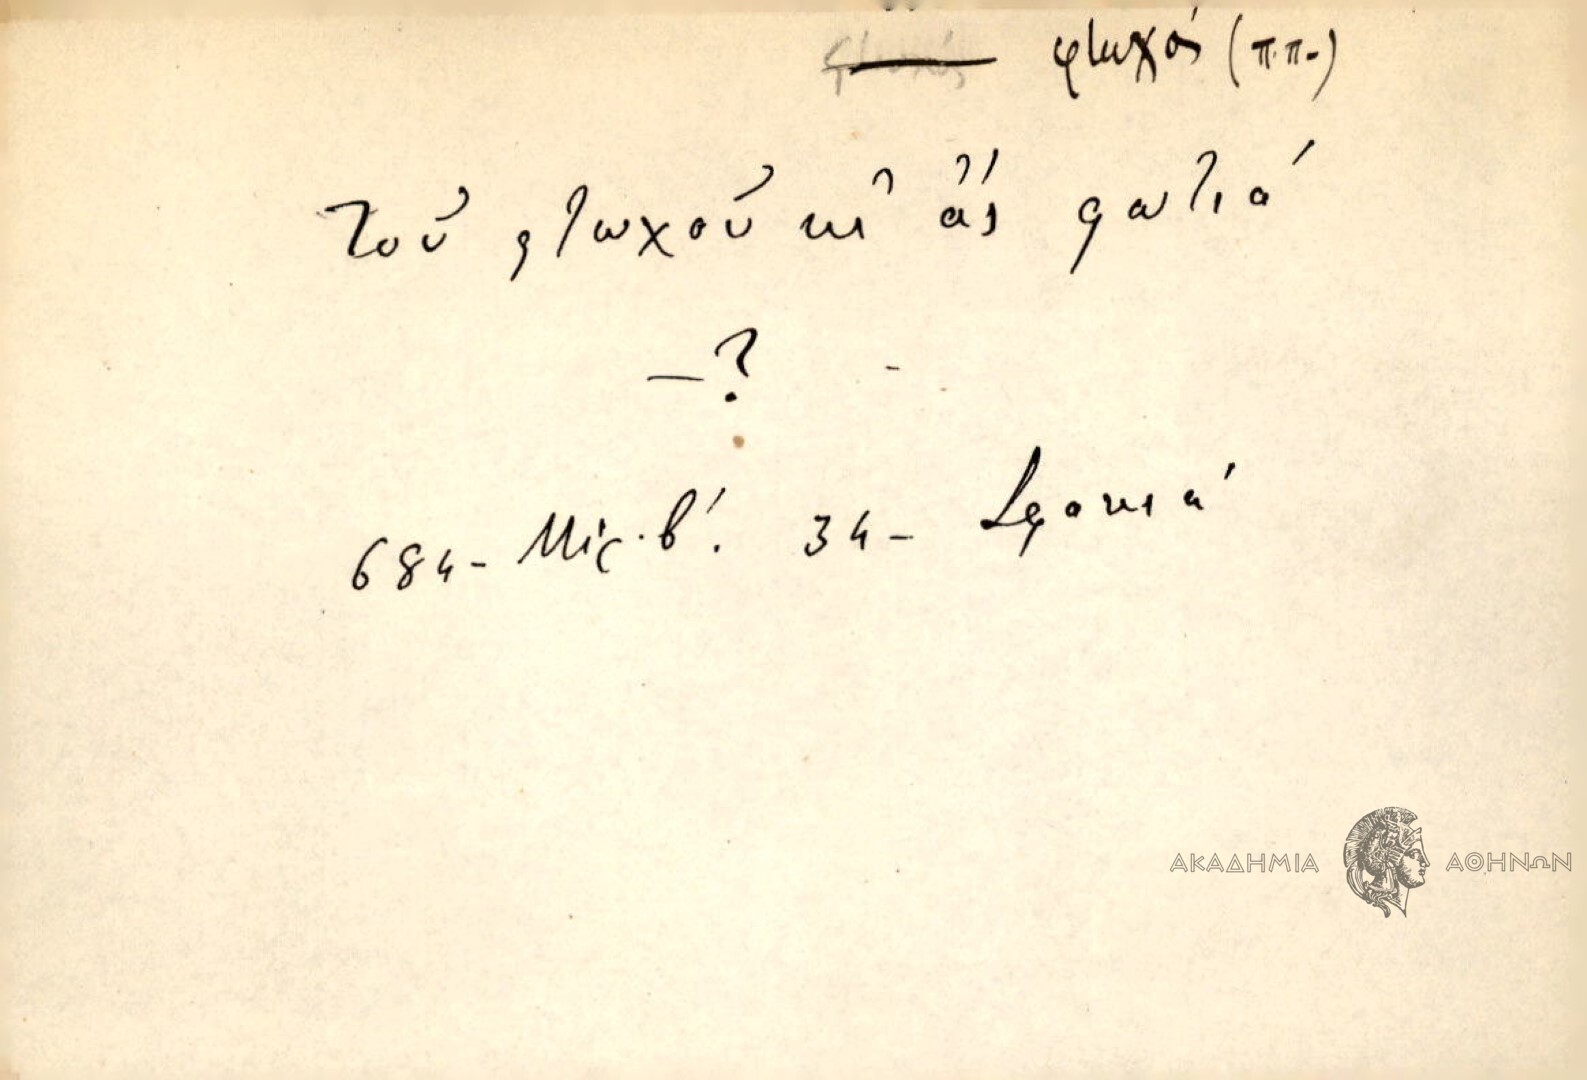 φτωχός φτωχός (π.π.)
Τοῦ φτωχοῦ κι ἂς φωτιά
—?
684- Μίς. β΄. 34- Σφακιά
ΑΚΑΔΗΜΙΑ ΑΘΗΝΩΝ